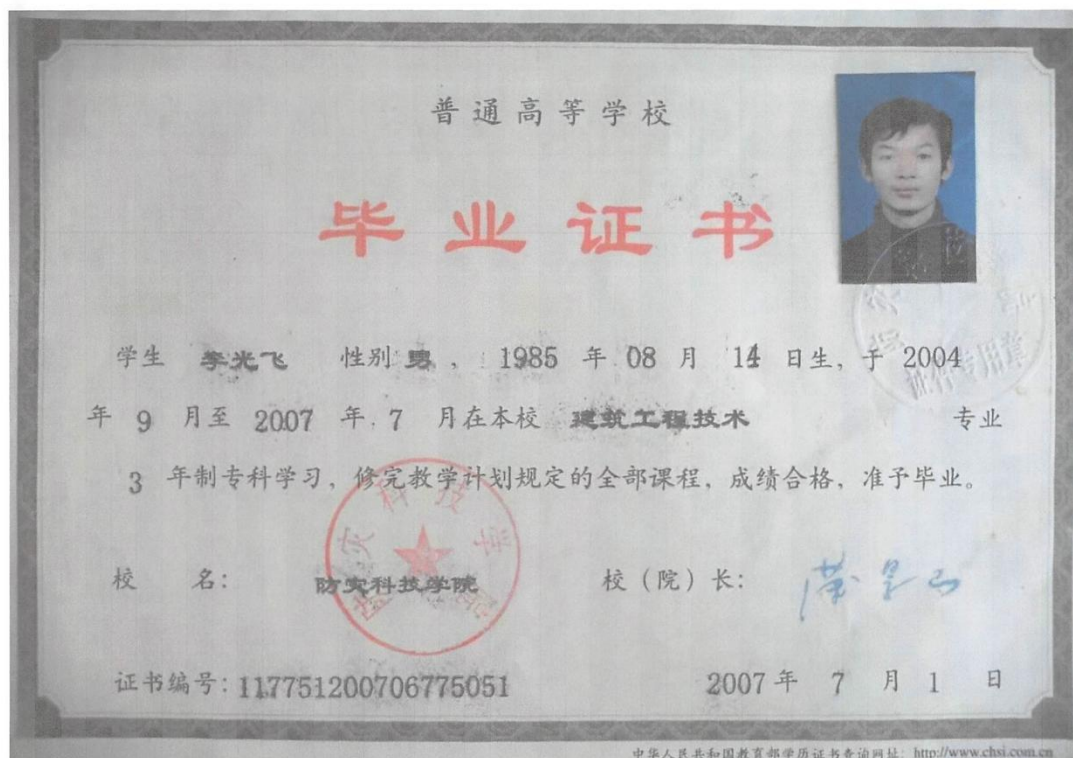 普通高等学校
毕业证书
学生 李光飞 性别 男 ， 1985 年 08 月 14 日生，于 2004
年 9 月至 2007 年 7 月在本校 建筑工程技术 专业
3 年制专科学习，修完教学计划规定的全部课程，成绩合格，准予毕业。
校 名： 防灾科技学院 校（院）长：
证书编号：117751200706775051 2007 年 7 月 1 日
中华人民共和国教育部学历证书查询网址：http://www.chsi.com.cn
防灾科技学院
证件专用章